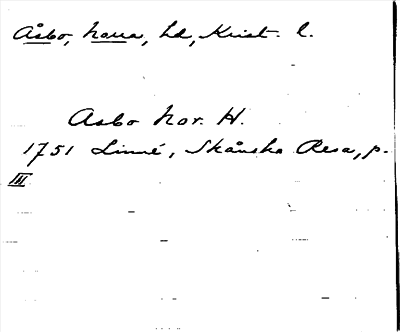 Åsbo, Norra, hd, Krist. l.
Asbo Nor. H.
1751 Linné, Skånska Resa, p.
III